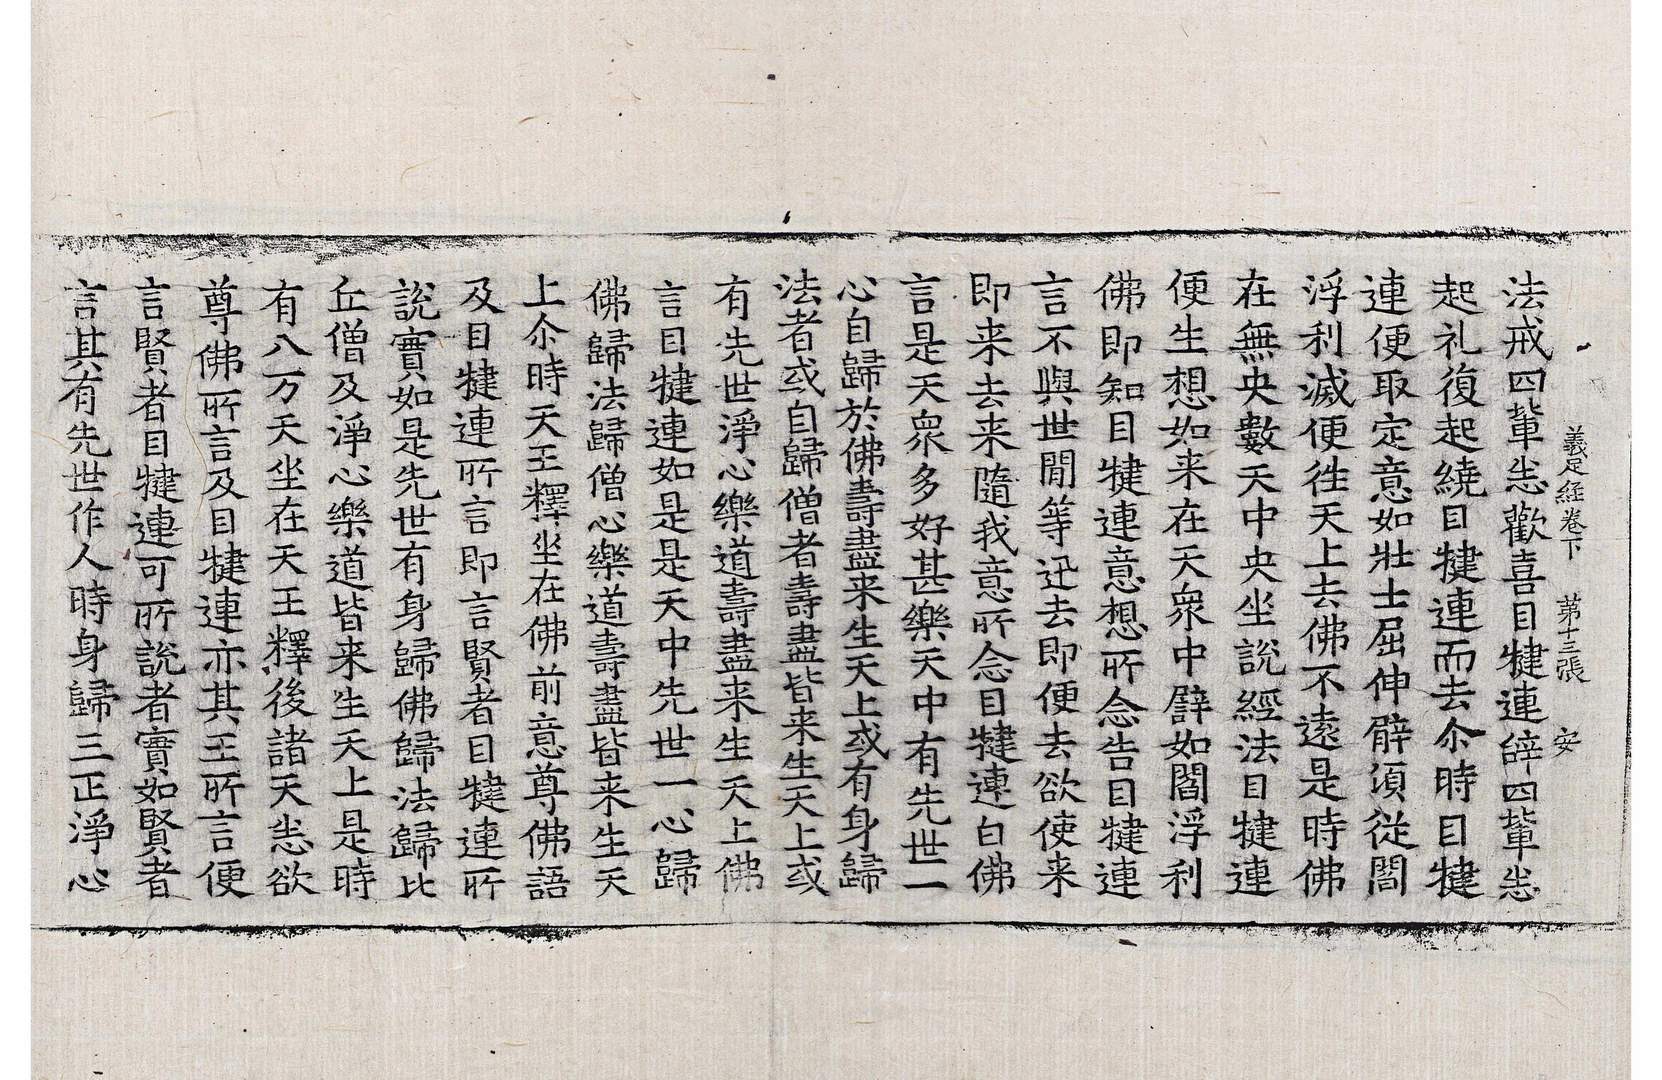 義足経卷下　第十三張　安
法戒四輩悉歡喜目犍連辝四輩悉
起礼復起繞目犍連而去尒時目犍
連便取定意如壯士屈伸臂湏從閻
浮利滅便徃天上去佛不遠是時佛
在無央數天中央坐說經法目犍連
便生想如来在天衆中譬如閻浮利
佛即知目犍連意想所念告目犍連
言不與世閒等迅去即便去欲使来
即来去来隨我意所念目犍連白佛
言是天衆多好甚樂天中有先世一
心自歸於佛壽盡来生天上或有身歸
法者或自歸僧者壽盡皆来生天上或
有先世淨心樂道壽盡来生天上佛
言目犍連如是是天中先世一心歸
佛歸法歸僧心樂道壽盡皆来生天
上尒時天王釋坐在佛前意尊佛語
及目犍連所言即言賢者目犍連所
說實如是先世有身歸佛歸法歸比
丘僧及淨心樂道皆来生天上是時
有八万天坐在天王釋後諸天悉欲
尊佛所言及目犍連亦其王所言便
言賢者目犍連可所說者實如賢者
言其有先世作人時身歸三正淨心